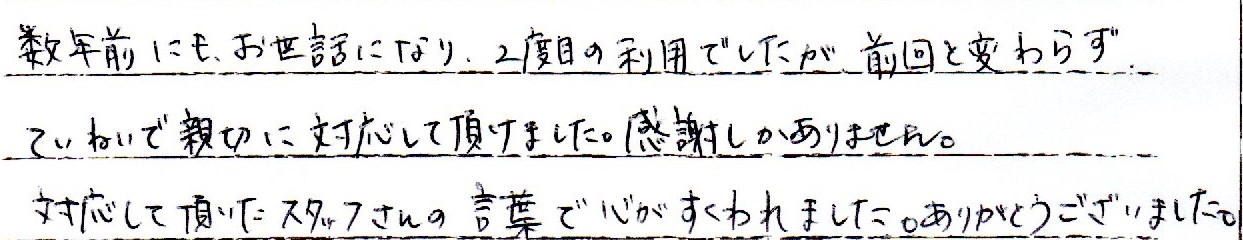 数年前にも、お世話になり、2度目の利用でしたが、前回と変わらず、
ていねいで親切に対応して頂けました。感謝しかありません。
対応して頂いたスタッフさんの言葉で心がすくわれました。ありがとうございました。